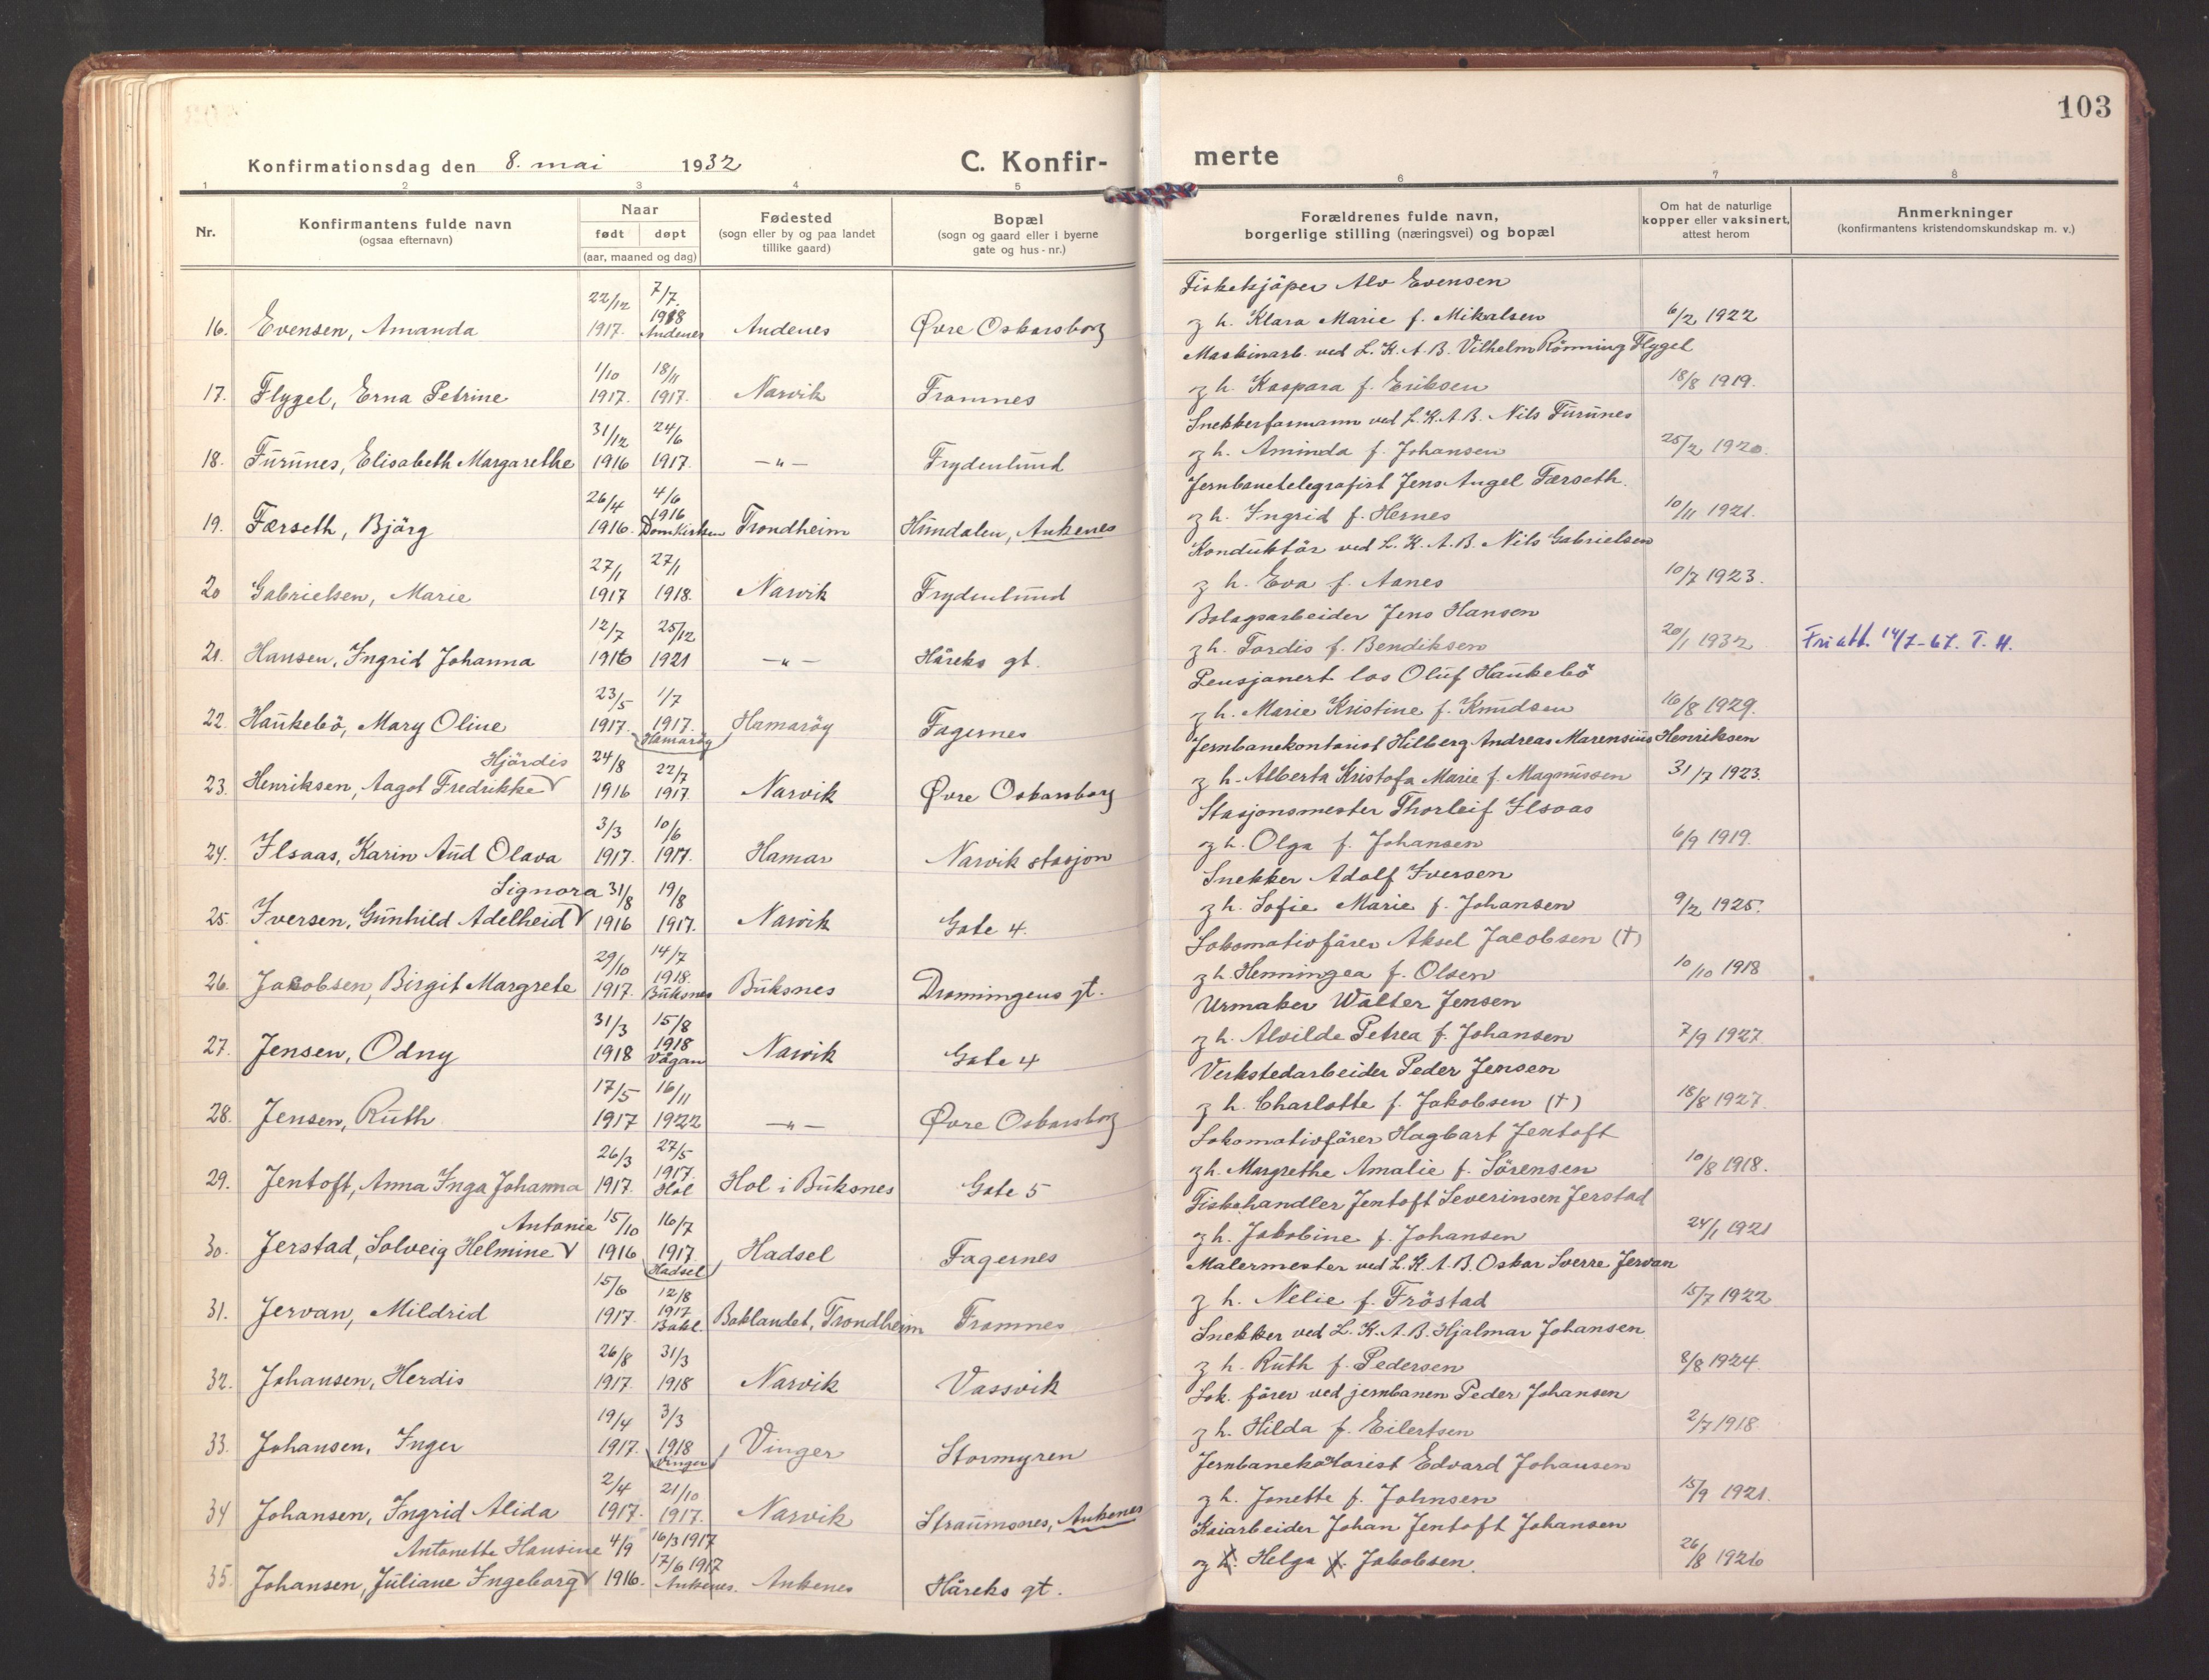 103
Konfirmationsdag den 8. mai 1932 C. Konfir-merte
1 2 3 4 5 6 7 8
Nr.
Konfirmantens fulde navn
(ogsaa efternavn)
Naar
født døpt
(aar, maaned og dag)
Fødested
(sogn eller by og paa landet
tillike gaard)
Bopæl
(sogn og gaard eller i byerne
gate og hus-nr.)
Forældrenes fulde navn,
borgerlige stilling (næringsvei) og bopæl
Om hat de naturlige
kopper eller vaksinert,
attest herom
Anmerkninger
(konfirmantens kristendomskundskap m. v.)
22/12 7/7 Fiskekjöper Alv Evensen
1918
16. Evensen, Amanda 1917. Andenes Andenes Øvre Oskarsborg og h. Klara Marie f. Mikalsen 6/2 1922
1/10 18/11 Maskinarb. ved L.K.A.B. Vilhelm Rönning Flygel
17. Flygel, Erna Petrine 1917. 1917. Narvik Framnes og h. Kaspara f. Eriksen 18/8 1919.
31/12 24/6 Snekkerformann ved L.K.A.B. Nils Furunes
18. Furunes, Elisabeth Margarethe 1916 1917. —"— Frydenlund og h. Aminda f. Johansen 25/2 1920.
26/4 4/6 Jernbanetelegrafist Jens Angel Færseth.
1916
19. Færseth, Bjärg 1916. Domkirken Trondheim Hundalen, Ankenes og h. Ingrid f. Hernes 10/11 1921.
27/1 27/1 Konduktör ved L.K.A.B. Nils Gabrielsen
20 Gabrielsen, Marie 1917 1918. Narvik Frydenlund og h. Eva f. Aanes 10/7 1923.
12/7 25/12 Bolagsarbeider Jens Hansen
21. Hansen, Ingrid Johanna 1916 1921 —"— Håreks gt. og h. Tordis f. Bendiksen 20/1 1932 Fri att. 14/7-67. T. H.
23/5 1/7 Pensjonert los Oluf Haukebö
22. Haukebö, Mary Oline 1917. 1917. Hamaröy Fagernes og h. Marie Kristine f. Knudsen 16/8 1929.
Hamaröy
Hjördis 24/8 22/7 Jernbanekontorist Hilberg Andreas Marensius Henriksen
23. Henriksen, Aagot Fredrikke V 1916 1917. Narvik Øvre Oskarsborg og h. Alberta Kristofa Marie f. Magnussen 31/7 1923.
3/3 10/6 Stasjonsmester Thorleif Ilsaas
24. Ilsaas, Karin Aud Olava 1917. 1917. Hamar Narvik stasjon og h. Olga f. Johansen 6/9 1919.
Signora 31/8 19/8 Snekker Adolf Iversen
25. Iversen, Gunhild Adelheid V 1916 1917. Narvik Gate 4. og h. Sofie Marie f. Johansen 9/2 1925.
29/10 14/7 Lokomotivförer Aksel Jacobsen (†)
1918.
26. Jakobsen, Birgit Margrete 1917. Buksnes Buksnes Dronningens gt. og h. Henningea f. Olsen 10/10 1918
31/3 15/8 Urmaker Walter Jensen
1918
27. Jensen, Odny 1918 Vågan Narvik Gate 4 og h. Alvilde Petrea f. Johansen 7/9 1927.
17/5 16/11 Verkstedarbeider Peder Jensen
28. Jensen, Ruth 1917 1922 —"— Øvre Oskarsborg og h. Charlotte f. Jakobsen (†) 18/8 1927.
26/3 27/5 Lokomotivförer Hagbart Jentoft
1917.
29. Jentoft, Anna Inga Johanna 1917. Hol Hol i Buksnes Gate 5 og h. Margrethe Amalie f. Sörensen 10/8 1918.
Antonie 15/10 16/7 Fiskehandler Jentoft Severinsen Jerstad
30. Jerstad, Solveig Helmine V 1916 1917 Hadsel Fagernes og h. Jakobine f. Johansen 24/1 1921
Hadsel
15/6 12/8 Malermester ved L.K.A.B. Oskar Sverre Jervan
1917
31. Jervan, Mildrid 1917. Bakl. Baklandet, Trondheim Framnes og h. Nelie f. Fröstad 15/7 1922
26/8 31/3 Snekker ved L.K.A.B. Hjalmar Johansen
32. Johansen, Herdis 1917. 1918 Narvik Vassvik og h. Ruth f. Pedersen 8/8 1924.
19/4 3/3 Lok. förer ved jernbanen Peder Johansen
33. Johansen, Inger 1917. 1918 Vinger Stormyren og h. Hilda f. Eilertsen 2/7 1918.
Vinger
2/4 21/10 Jernbanekontorist Edvard Johansen
34 Johansen, Ingrid Alida 1917. 1917. Narvik Straumsnes, Ankenes og h. Jonette f. Johnsen 15/9 1921.
Antonette Hansine 4/9 16/3 1917 Kaiarbeider Johan Jentoft Johansen
17/6 1917
35. Johansen, Juliane Ingeborg V 1916. Ankenes. Ankenes Håreks gt. og h. Helga f. Jakobsen. 26/8 1926